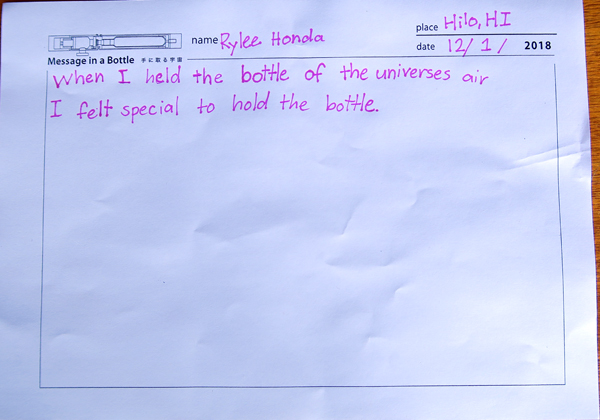 name Rylee Honda
place Hilo, HI
date 12/1/ 2018
Message in a Bottle 手に取る宇宙
When I held the bottle of the universes air
I felt special to hold the bottle.